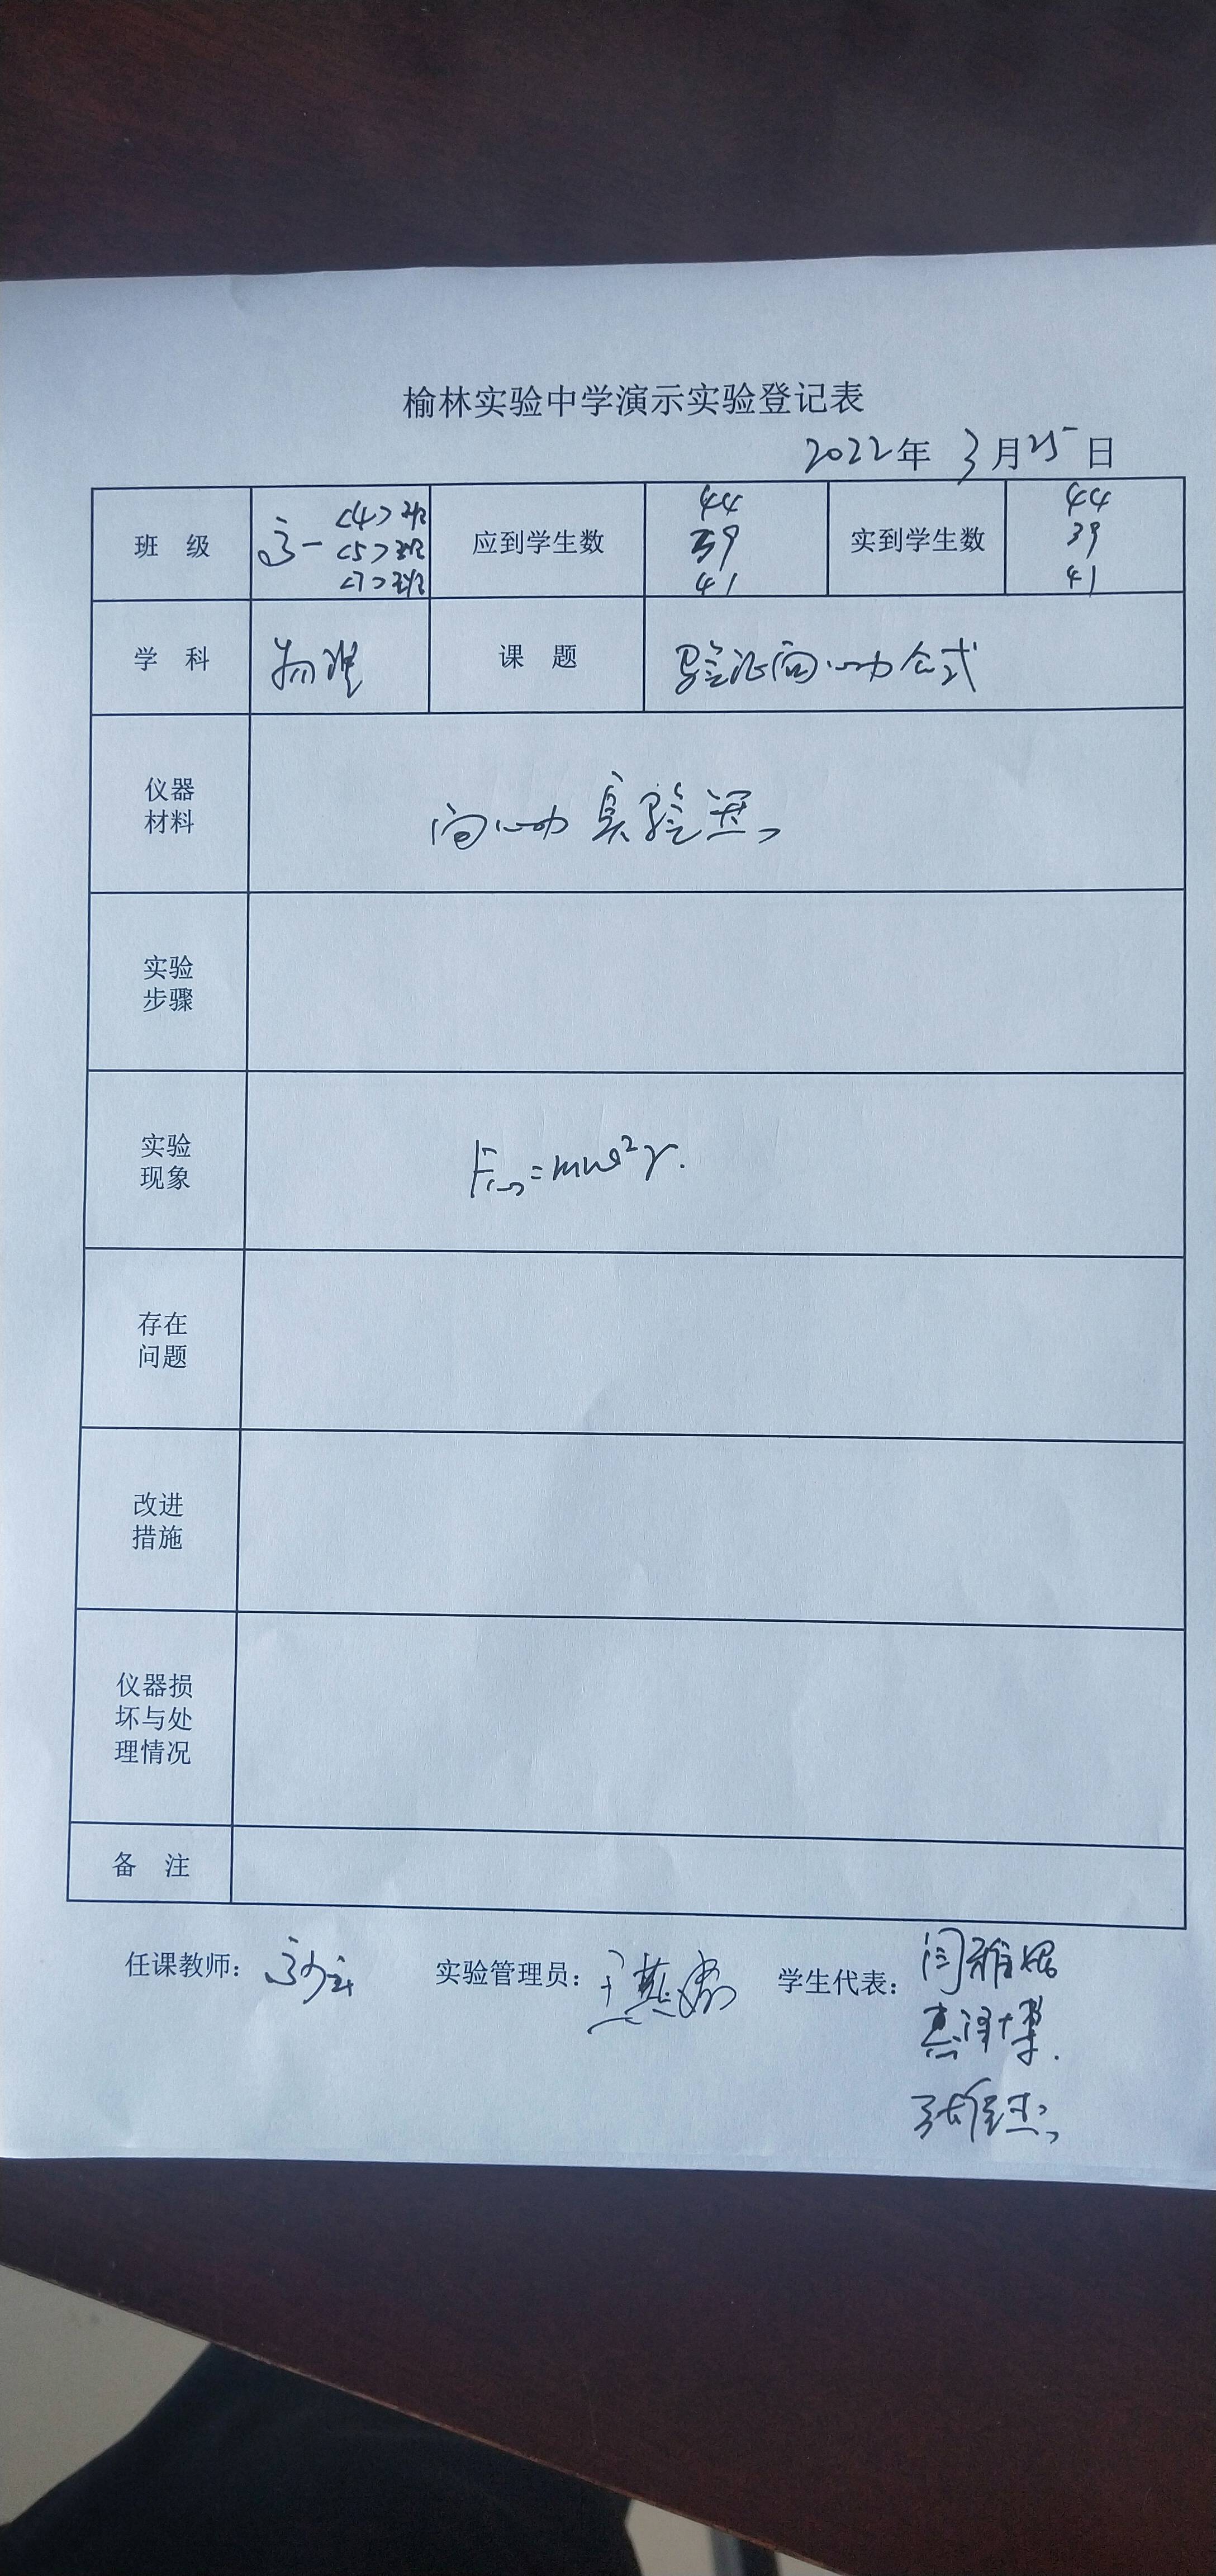 榆林实验中学演示实验登记表
2022年 3月25日
班 级 高一 <4>班 应到学生数 44 实到学生数 44
<5>班 39 39
<7>班 41 41
学 科 物理 课 题 验证向心力公式
仪器
材料
向心力实验器
实验
步骤
实验
现象
F向=mω²r.
存在
问题
改进
措施
仪器损
坏与处
理情况
备 注
任课教师: 实验管理员: 学生代表: